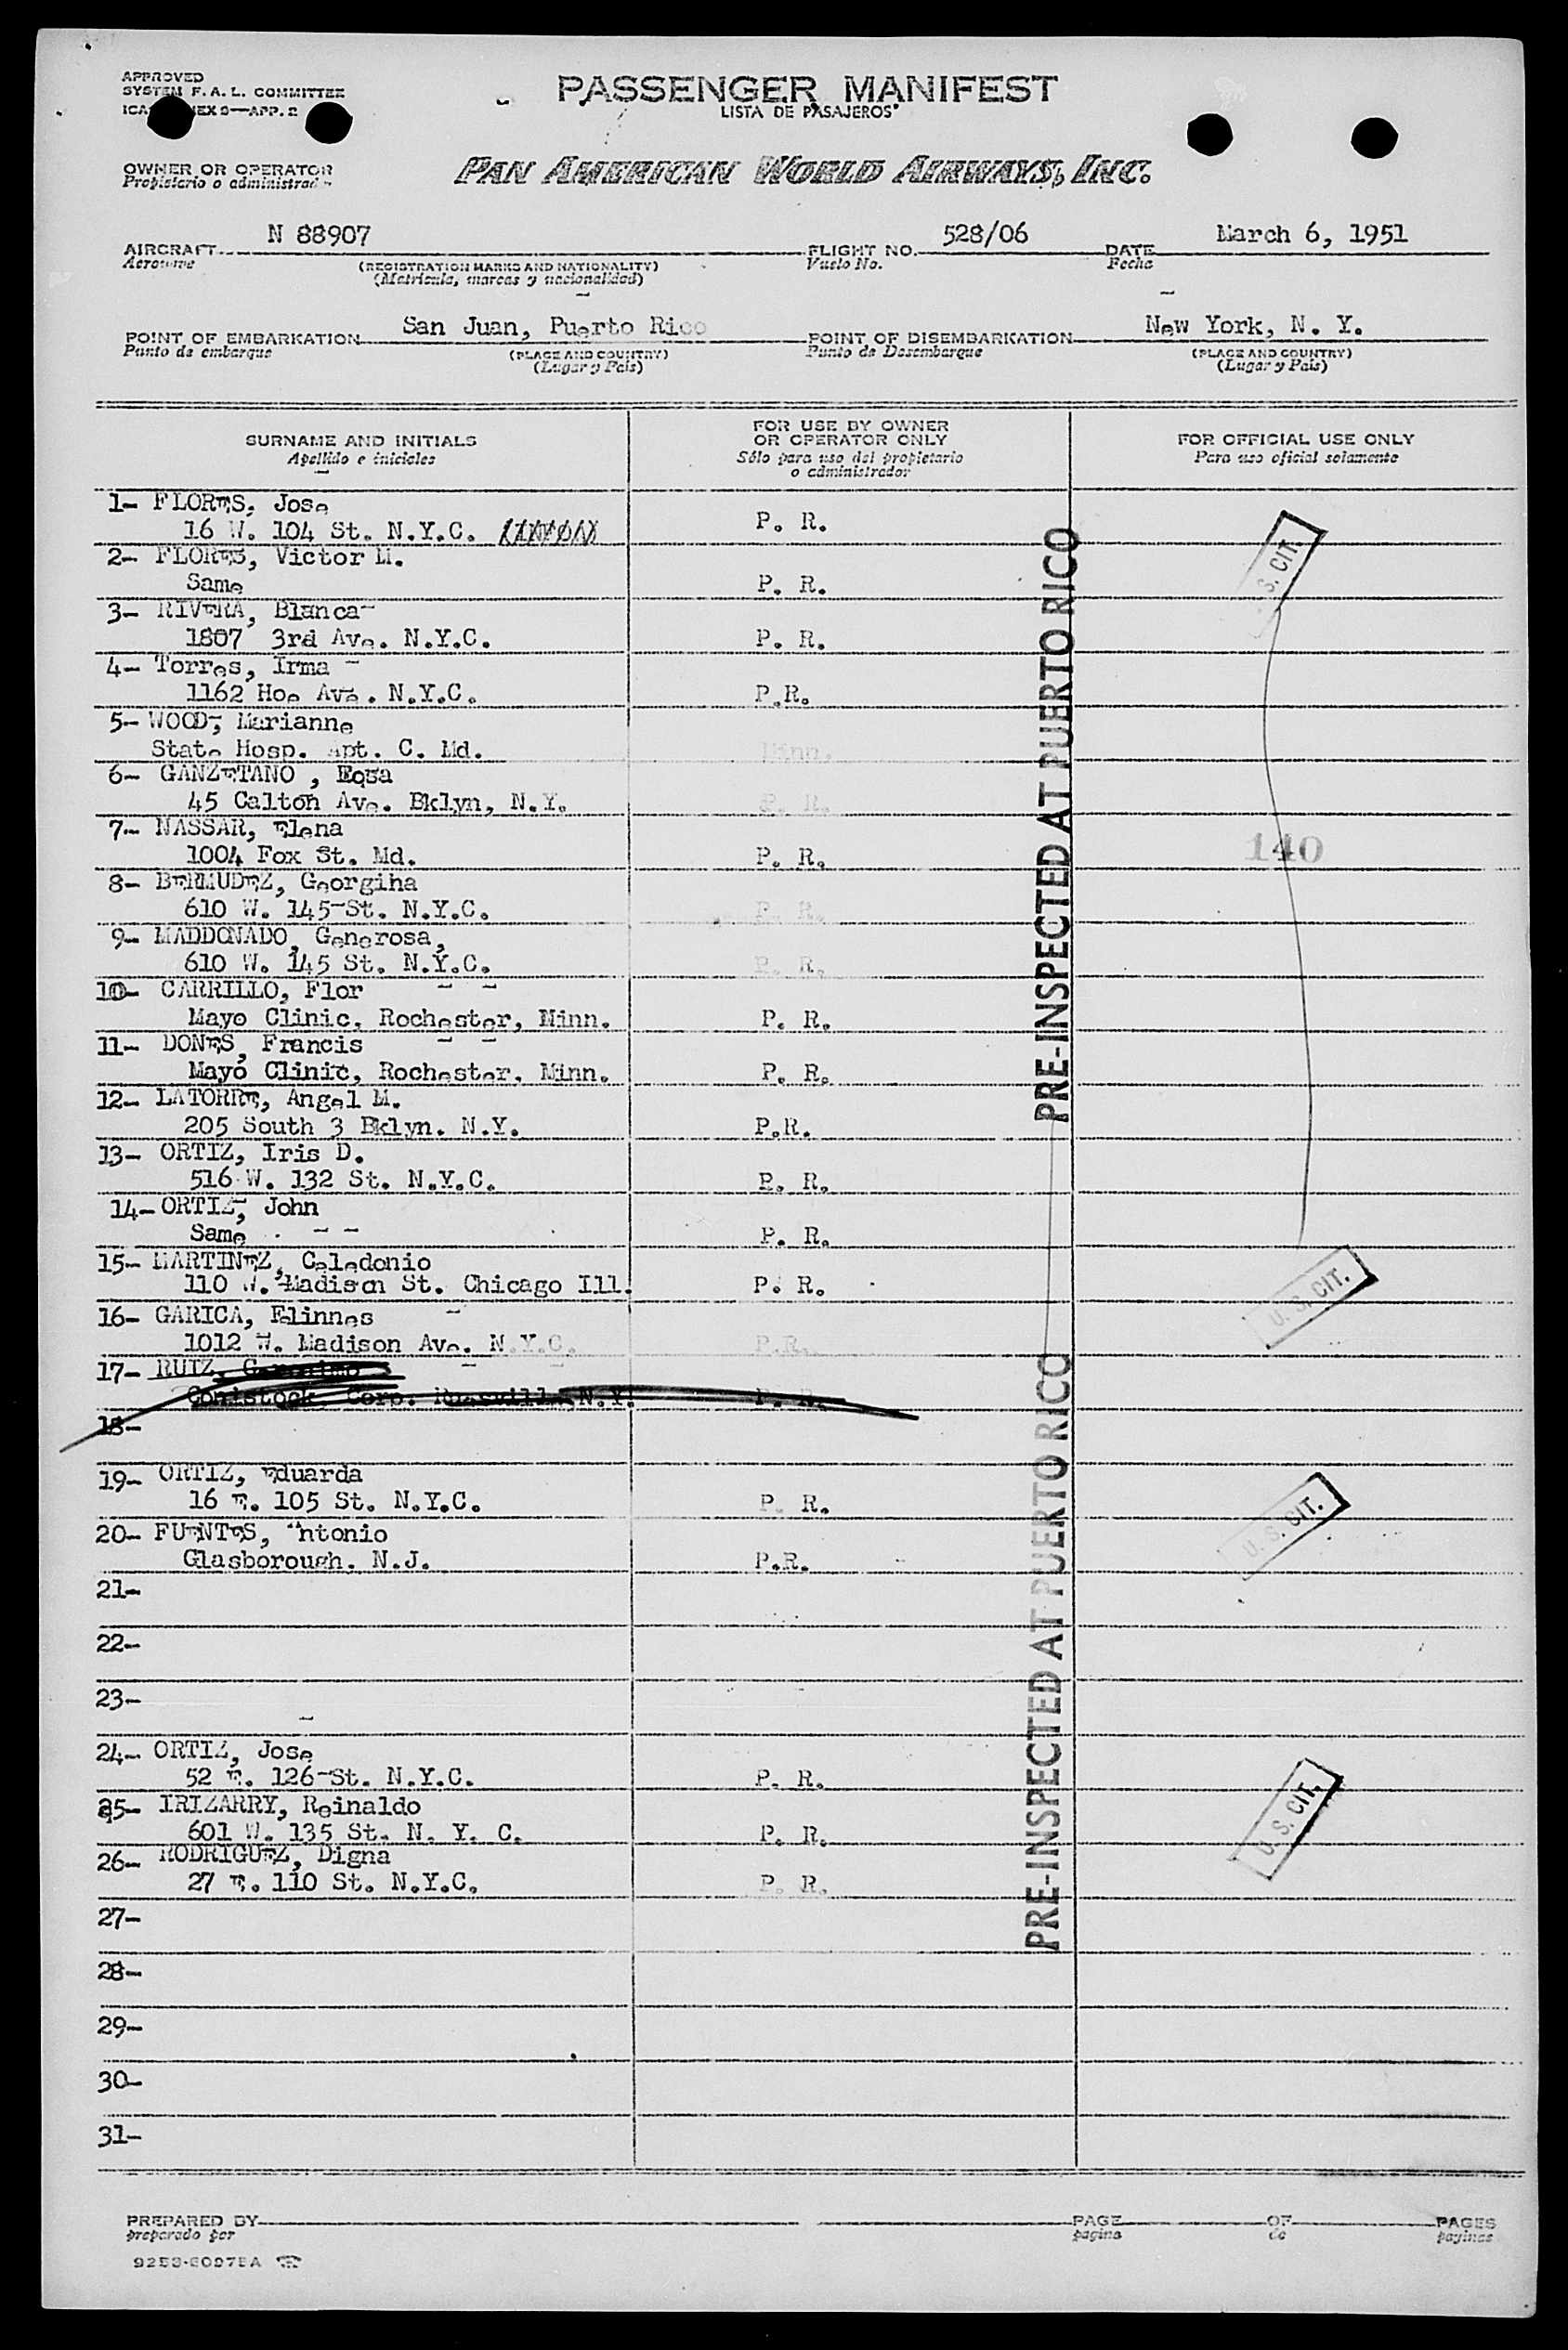 APPROVED
SYSTEM F. A. L. COMMITTEE
ICA EX 9—APP. 2
PASSENGER MANIFEST
LISTA DE PASAJEROS
OWNER OR OPERATOR
Propietario o administrador
PAN AMERICAN WORLD AIRWAYS, INC.
AIRCRAFT N 88907 FLIGHT NO. 528/06 DATE March 6, 1951
Aeronave (REGISTRATION MARKS AND NATIONALITY) Vuelo No. Fecha
(Matricula, marcas y nacionalidad)
POINT OF EMBARKATION San Juan, Puerto Rico POINT OF DISEMBARKATION New York, N. Y.
Punto de embarque (PLACE AND COUNTRY) Punto de Desembarque (PLACE AND COUNTRY)
(Lugar y Pais) (Lugar y Pais)
SURNAME AND INITIALS
Apellido e iniciales
FOR USE BY OWNER
OR OPERATOR ONLY
Sólo para uso del propietario
o administrador
FOR OFFICIAL USE ONLY
Para uso oficial solamente
1- FLORES, Jose
16 W. 104 St. N.Y.C. P. R.
2- FLORES, Victor M.
Same P. R.
3- RIVERA, Blanca
1807 3rd Ave. N.Y.C. P. R.
4- Torres, Irma
1162 Hoe Ave. N.Y.C. P.R.
5- WOOD, Marianne
State Hosp. Apt. C. Md. Minn.
6- GANZETANO, Rosa
45 Calton Ave. Bklyn, N.Y. P. R.
7- NASSAR, Elena
1004 Fox St. Md. P. R.
8- BERMUDEZ, Georgiha
610 W. 145 St. N.Y.C. P. R.
9- MADDONADO, Generosa,
610 W. 145 St. N.Y.C. P. R.
10- CARRILLO, Flor
Mayo Clinic, Rochester, Minn. P. R.
11- DONES, Francis
Mayo Clinic, Rochester, Minn. P. R.
12- LATORRE, Angel M.
205 South 3 Bklyn. N.Y. P.R.
13- ORTIZ, Iris D.
516 W. 132 St. N.Y.C. P. R.
14- ORTIZ, John
Same P. R.
15- MARTINEZ, Celedonio
110 W. Madison St. Chicago Ill. P. R.
16- GARICA, Elinnes
1012 W. Madison Ave. N.Y.C. P.R.
17- RUIZ, Geronimo
Comstock, Corp. N.Y. P. R.
18-
19- ORTIZ, Eduarda
16 E. 105 St. N.Y.C. P. R.
20- FUENTES, Antonio
Glasborough. N.J. P.R.
21-
22-
23-
24- ORTIZ, Jose
52 E. 126 St. N.Y.C. P. R.
25- IRIZARRY, Reinaldo
601 W. 135 St. N. Y. C. P. R.
26- RODRIGUEZ, Digna
27 E. 110 St. N.Y.C. P. R.
27-
28-
29-
30-
31-
PRE-INSPECTED AT PUERTO RICO
PRE-INSPECTED AT PUERTO RICO
S. CIT.
140
U. S. CIT.
U. S. CIT.
U. S. CIT.
PREPARED BY PAGE OF PAGES
preparado por pagina de paginas